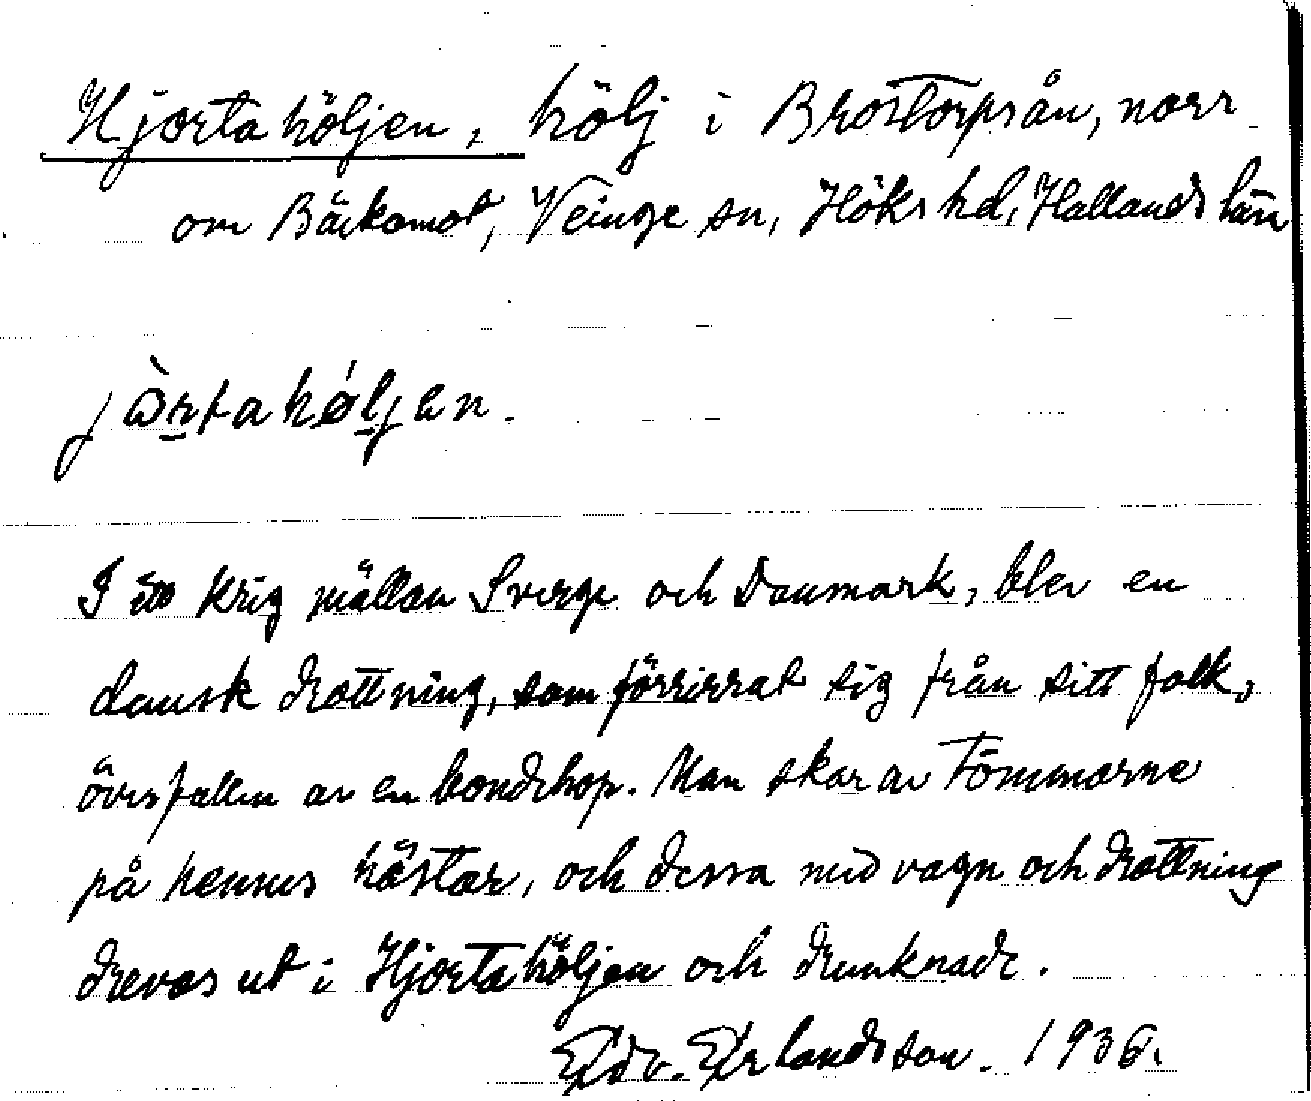 Hjortahöljen, hölj i Brostorpsån, norr
om Bäckamot, Veinge sn, Höks hd, Hallands län
jòrtahǿljen.
I ett krig mällan Sverge och Danmark, blev en
dansk drottning, som förrirrat sig från sitt folk,
överfallen av en bondehop. Man skar av tömmarne
på hennes hästar, och dessa med vagn och drottning
drevos ut i Hjortahöljen och drunknade.
Edv. Erlandsson. 1936.